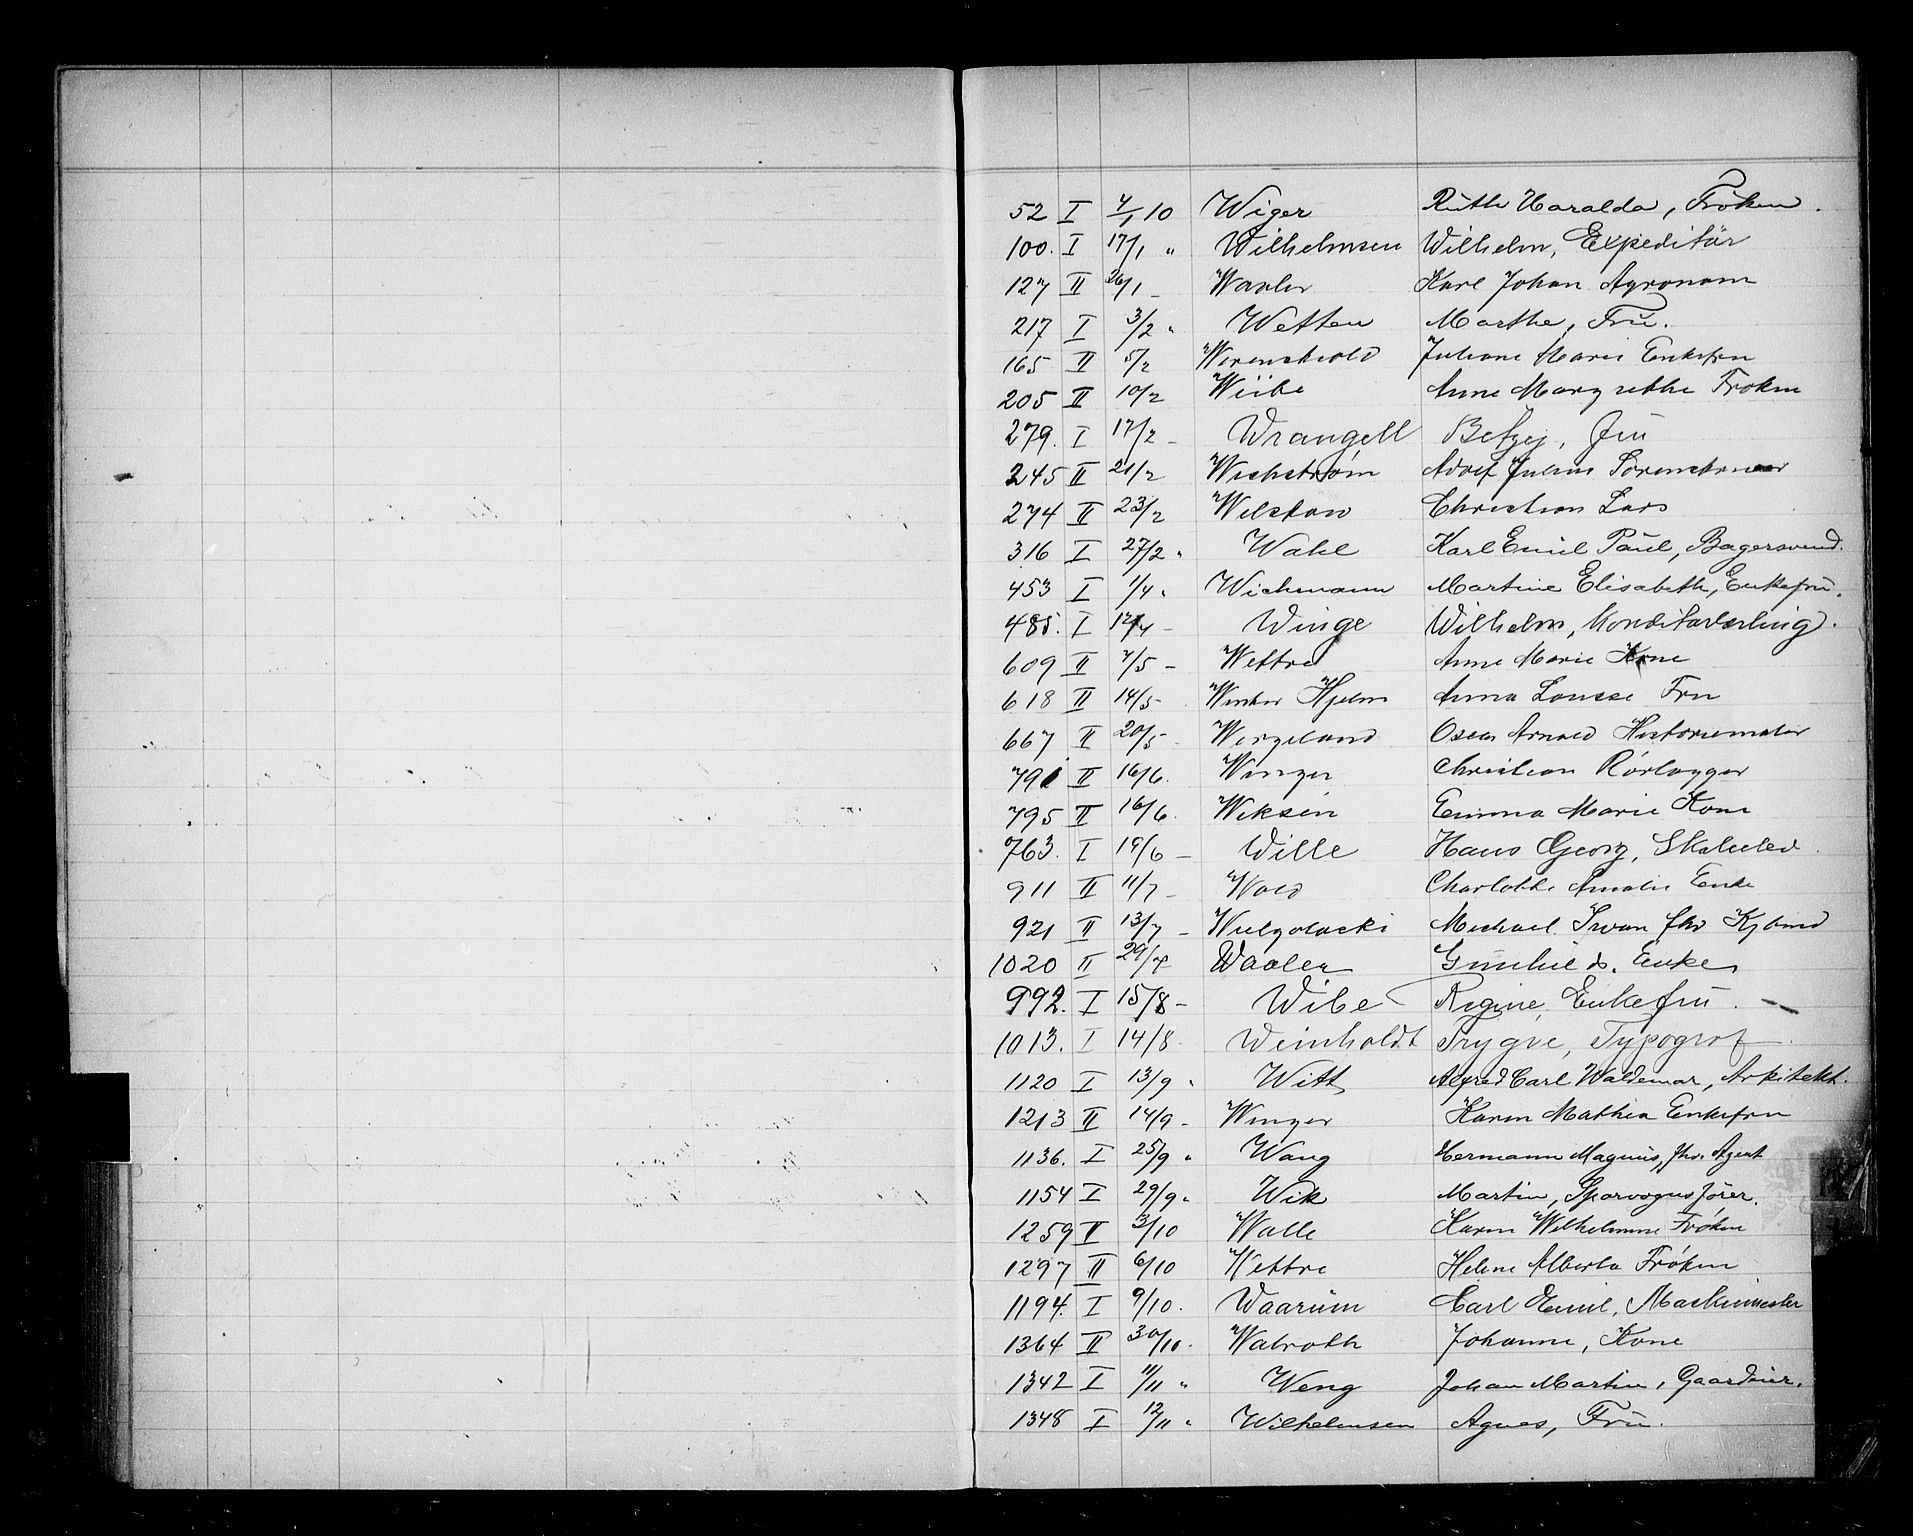 52 I 4/1 10 Wiger Ruth Haralda, Frøken.
100. I 17/1 " Wilhelmsen Wilhelm, Expeditør
127 II 26/1 - Waaler Karl Johan Agronom
217 I 3/2 " Wetten Marthe, Fru.
165 II 5/2 Werenskiold Juliane Marie Enkefru
205 II 10/2 Wiibe Anne Margrethe Frøken
279. I 17/2 - Wrangell Betzy, Fru
245 II 21/2 Wichstrøm Adolf Julius
274 II 23/2 Christian Lars
316 I 27/2 " Wahl Karl Emil Paul, Bagersvend.
453 I 1/4 " Wichmann Martine Elisabeth, Enkefru.
485. I 12/4 - Winge Wilhelm, Konditorlærling.
609 II 7/5 - Wettre Anne Marie Kone
618 II 14/5 - Winter Hjelm Anna Lousse Fru
667 II 20/5 - Wergeland Oscar Arnold Historiemaler
791 II 16/6. Winger Christian Rørlægger
795 II 16/6. Wiksen Emma Marie Kone
763. I 19/6 - Wille Hans Georg,
911 II 11/7 - Wold Charlotte Amalie Enke
921 II 13/7 - Michael Iwan fhv Kjbmd
1020 II 29/7 Waaler Gunhild d. Enke
992. I 15/8 - Wibe Regine, Enkefru.
1013. I 14/8. Weinholdt Trygve, Typograf
1120 I 13/9 " Witt Alfred Carl Waldemar, Arkitekt.
1213 II 14/9 - Winger Karen Mathea Enkefru
1136. I 25/9 " Wang Hermann Magnus, fhv. Agent
1154 I 29/9 " Wik Martin, Sporvognsfører.
1259 II 3/10 Walle Karen Wilhelmine Frøken
1297 II 6/10 Wettre Helene Alberta Frøken
1194. I 9/10. Waarum Carl Emil, Maskinmester
1364 II 30/10. Walroth Johanne, Kone
1342 I 11/11 " Weng Johan Martin, Gaardeier.
1348 I 12/11 " Wilhelmsen Agnes, Fru.